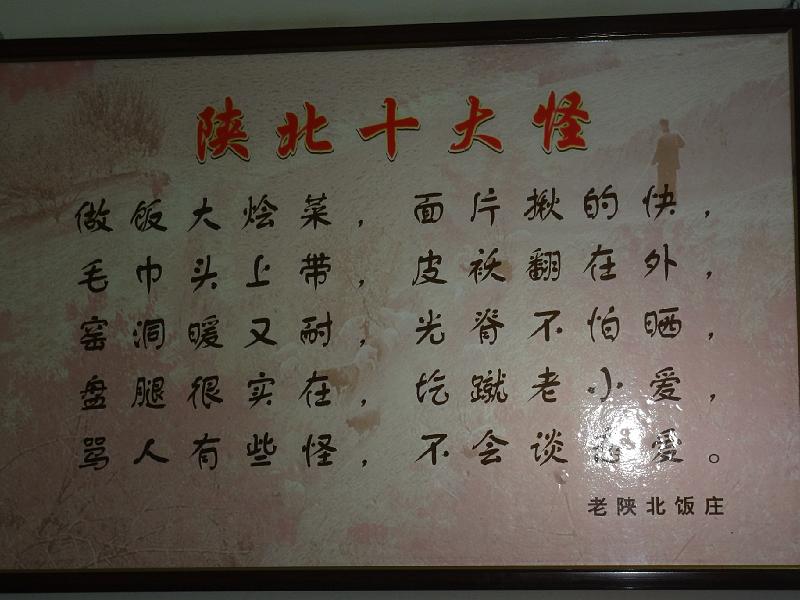 陕北十大怪
做饭大烩菜，面片揪的快，
毛巾头上带，皮袄翻在外，
窑洞暖又耐，光脊不怕晒，
盘腿很实在，圪蹴老小爱，
骂人有些怪，不会谈恋爱。
老陕北饭庄